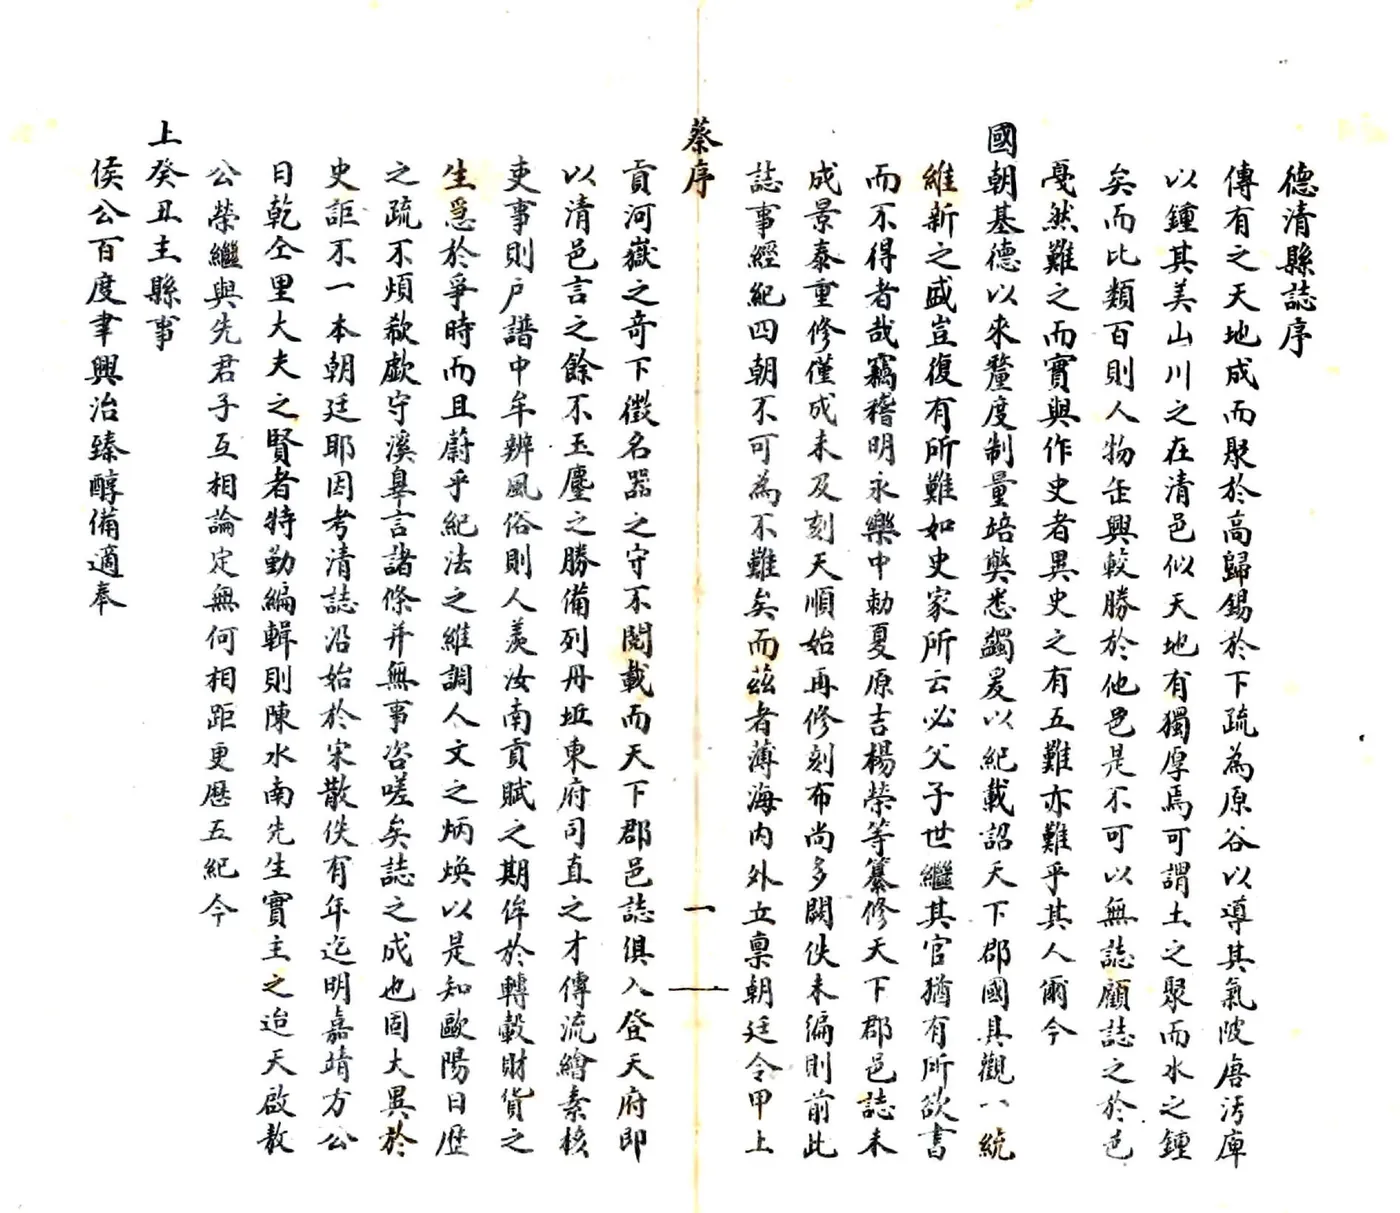 德清縣誌序
傳有之天地成而聚於高歸錫於下疏為原谷以導其氣陂唐汚庳
以鍾其美山川之在清邑似天地有獨厚焉可謂土之聚而水之鍾
矣而比類百則人物岳興較勝於他邑是不可以無誌顧誌之於邑
戞然難之而實與作史者異史之有五難亦難乎其人爾今
國朝基德以來釐度制量培獘悉蠲爰以紀載詔天下郡國具觀八統
維新之盛豈復有所難如史家所云必父子世繼其官猶有所欲書
而不得者哉竊稽明永樂中勅夏原吉楊榮等纂修天下郡邑誌未
成景泰重修僅成未及刻天順始再修刻布尚多闕佚未編則前此
誌事經紀四朝不可為不難矣而茲者薄海內外立禀朝廷令甲上
蔡序
一
貢河嶽之奇下徵名器之守不閱載而天下郡邑誌俱入登天府即
以清邑言之餘不玉塵之勝備列丹坵東府司直之才傳流繪素核
吏事則戶譜中牟辨風俗則人羨汝南貢賦之期侔於轉轂財貨之
生亟於爭時而且蔚乎紀法之維調人文之炳煥以是知歐陽日歷
之疏不煩欷歔守溪皋言諸條并無事咨嗟矣誌之成也固大異於
史詎不一本朝廷耶因考清誌沿始於宋散佚有年迄明嘉靖方公
日乾仝里大夫之賢者特勤編輯則陳水南先生實主之迨天啟敖
公榮繼與先君子互相論定無何相距更歷五紀今
上癸丑主縣事
侯公百度聿興治臻醇備適奉